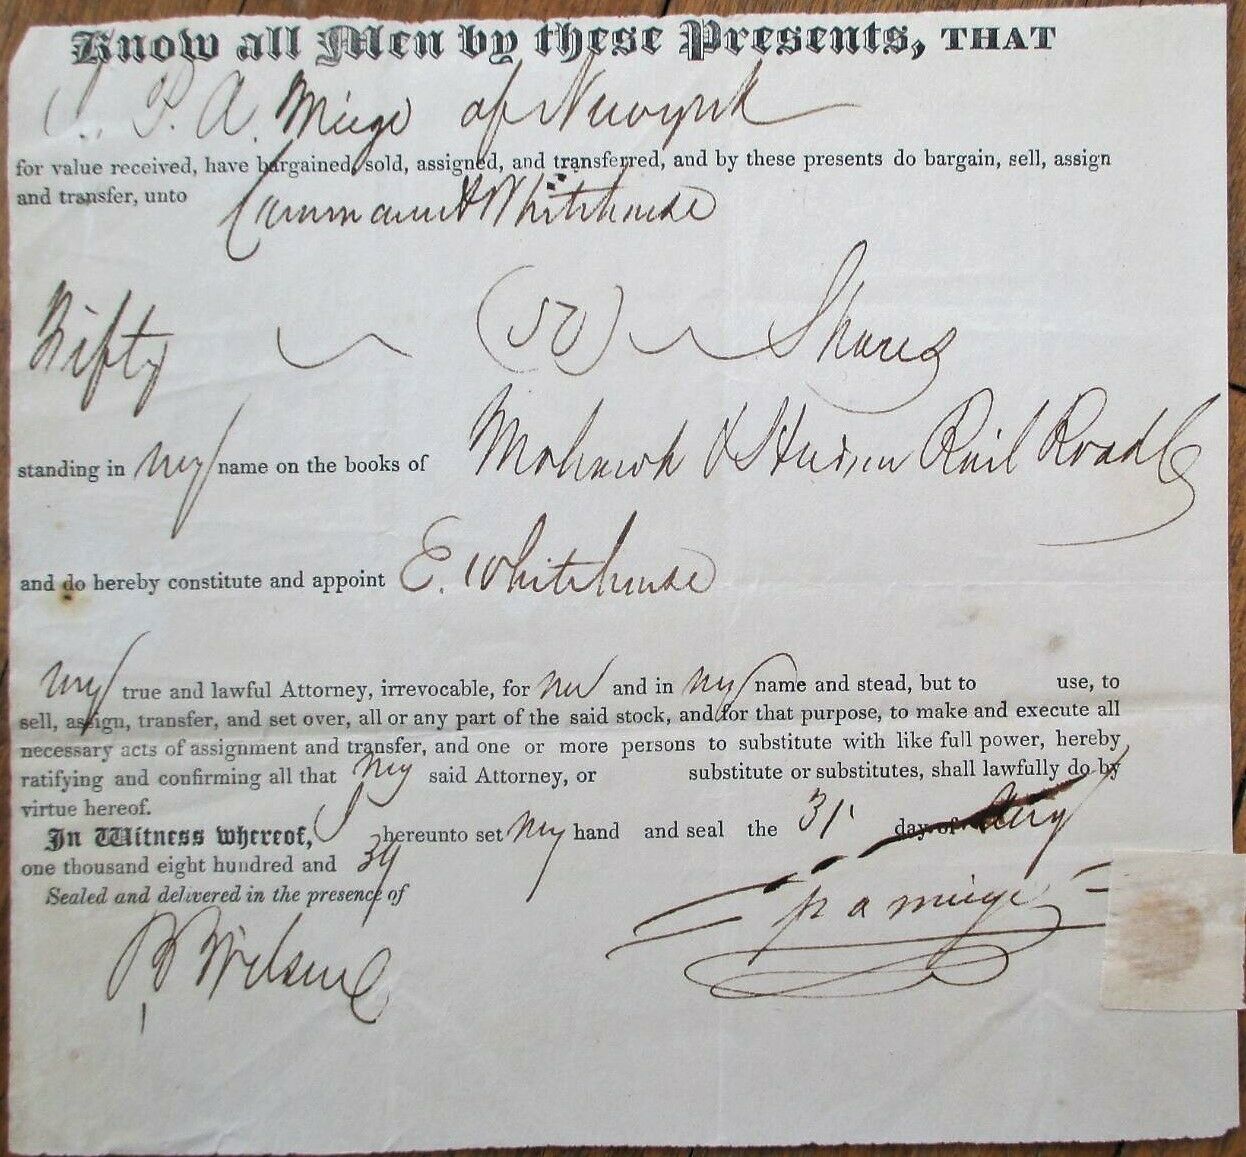 Know all Men by these Presents, THAT
I. P. A. Miege of Newyork
for value received, have bargained, sold, assigned, and transferred, and by these presents do bargain, sell, assign
and transfer, unto Cammann & Whitehouse
Fifty (50) Shares
standing in my name on the books of Mohawk & Hudson Rail Road Co
and do hereby constitute and appoint E. Whitehouse
my true and lawful Attorney, irrevocable, for me and in my name and stead, but to use, to
sell, assign, transfer, and set over, all or any part of the said stock, and for that purpose, to make and execute all
necessary acts of assignment and transfer, and one or more persons to substitute with like full power, hereby
ratifying and confirming all that my said Attorney, or substitute or substitutes, shall lawfully do by
virtue hereof.
In Witness whereof, I hereunto set my hand and seal the 31 day of Aug
one thousand eight hundred and 39
Sealed and delivered in the presence of
p a miege
B Wilson